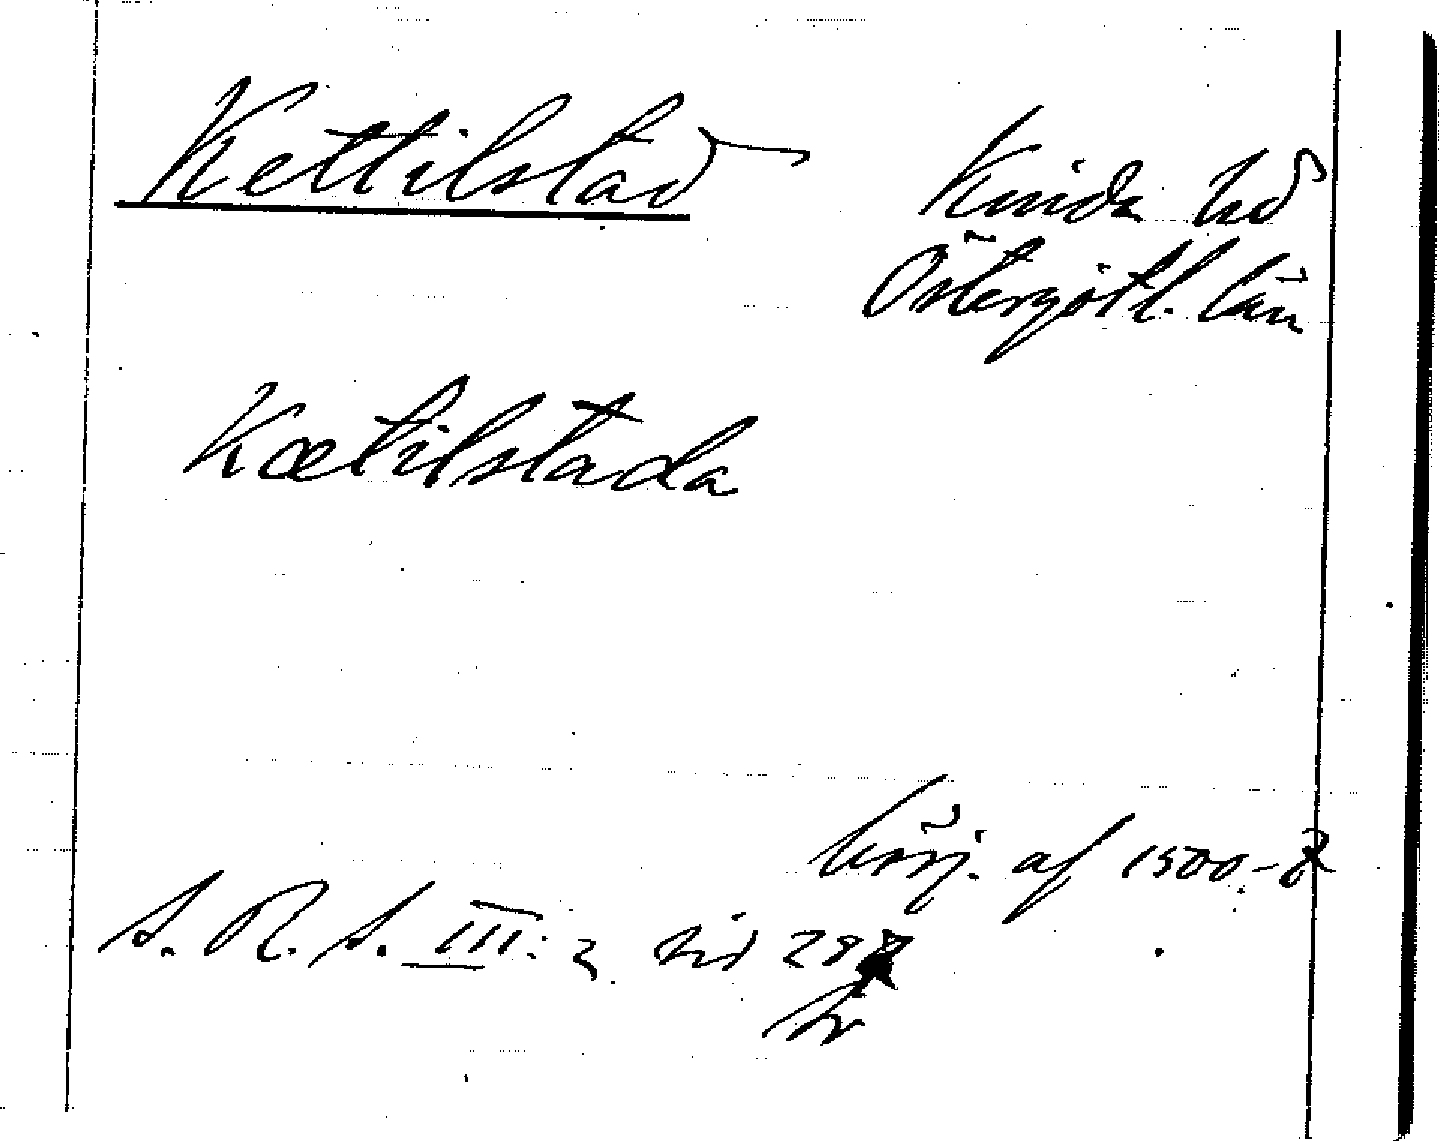 Kettilstad
Kinda hd
Östergötl. län
Kætilstada
börj. af 1500-t
S. R. S. III: 2 sid